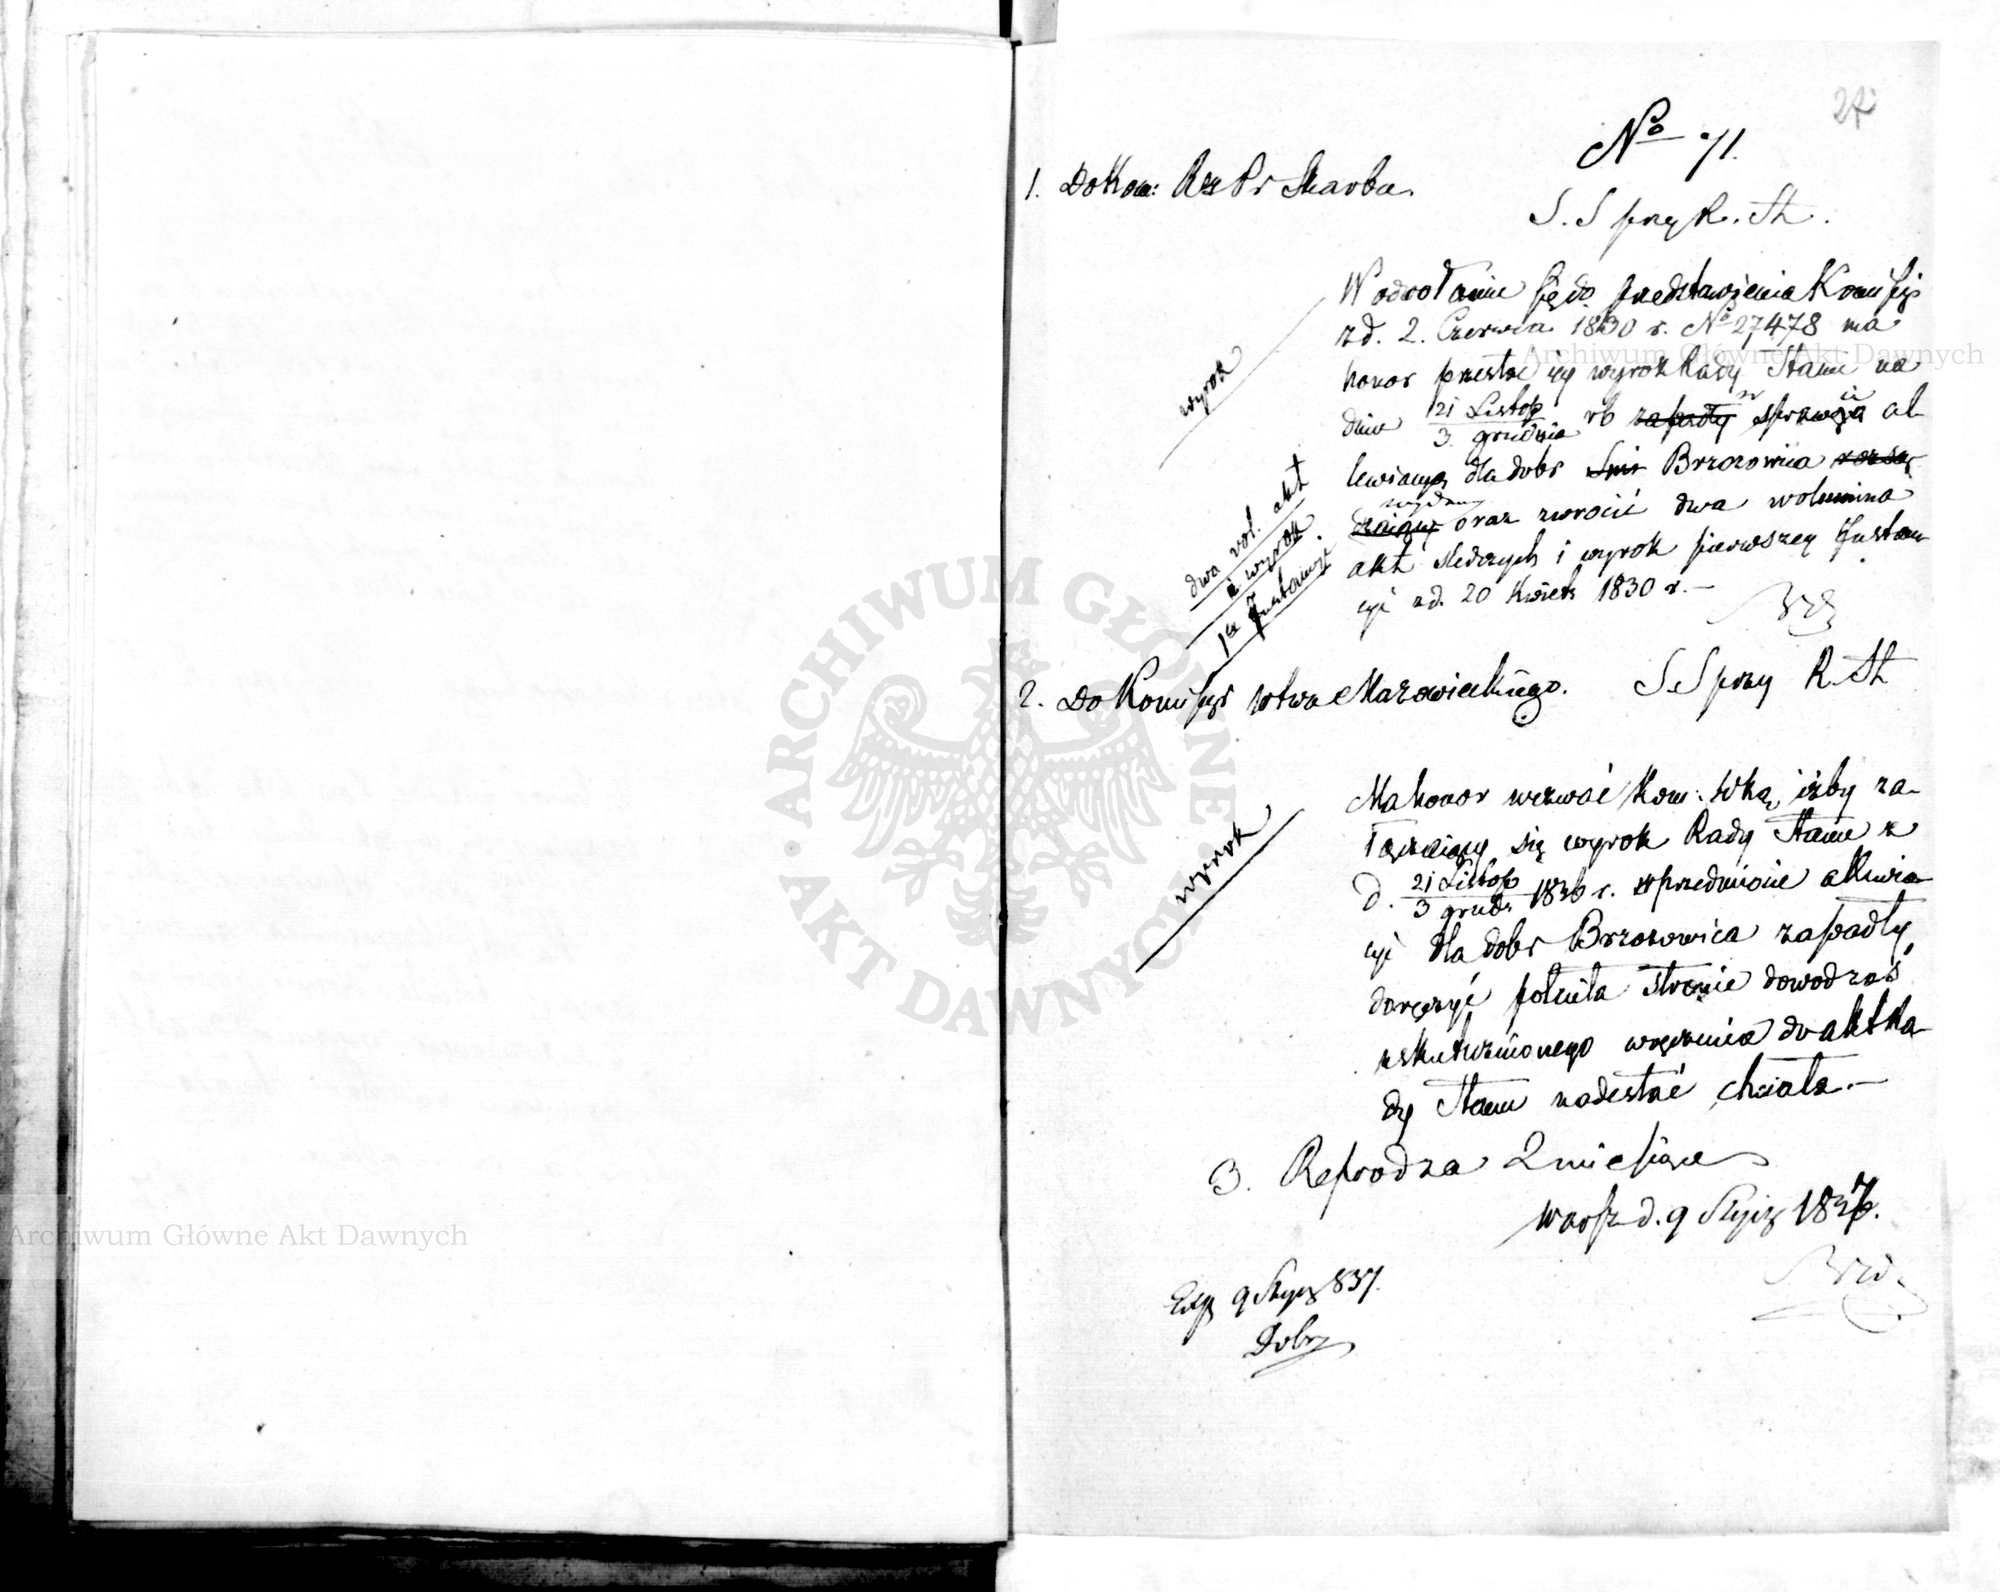 27
No 71.
1. Do Kom: Rz Pr Skarbu.
S. S przy R. St.
W odwołaniu się do przedstawienia Komisyi
z d. 2. Czerwca 1830 r. No 27478 ma
honor przesłać jej wyrok Rady Stanu na
dniu 21 Listop / 3 grudnia rb zapadły w sprawie al
lewiacyi dla dobr Brzozowica
wydany oraz zwrocić dwa wolumina
akt śledczych i wyrok pierwszey Instan
cyi z d. 20 Kwiet 1830 r. —
wyrok
dwa vol. akt
i wyrok
1ej Instancyi
2. Do Komisyi Wtwa Mazowieckiego.
S. S przy R. St
Ma honor wezwać Kom: Wką, iżby za-
łączaiący się wyrok Rady Stanu z
d. 21 Listop / 3 grudz 1836 r. w przedmiocie allewia
cyi dla dobr Brzozowica zapadły,
doręczyć poleciła stronie dowod zaś
uskutecznionego wręczenia do akt Ra
dy Stanu nadesłać chciała. —
wyrok
3. Reprod za 2 miesiące
Warsz d. 9 Stycz 1837.
Exp 9 Stycz 837.
Dobrz
Archiwum Główne Akt Dawnych
Archiwum Główne Akt Dawnych
ARCHIWUM GŁÓWNE AKT DAWNYCH